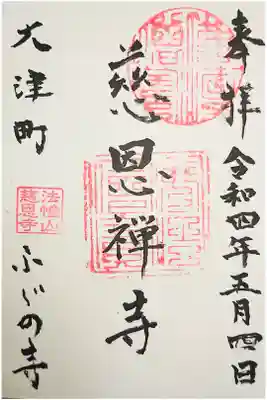 奉拝 令和四年五月四日
慈恩禅寺
大津町 ふじの寺
法雲山
慈恩寺